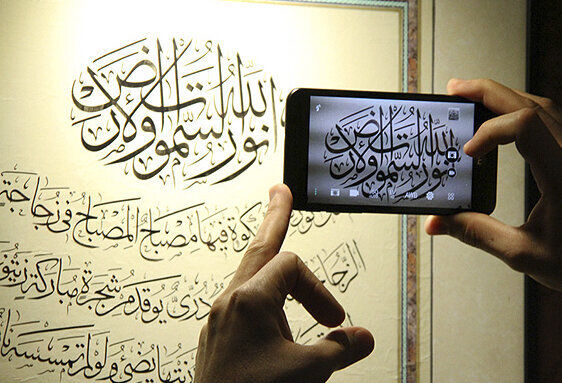 الله نور السموات والارض
كوة فيها مصباح المصباح في زجاجة
الزجا دري يوقد من شجرة مباركة زيتو
يتها يضئ ولو لم تمسسه نا
الله نور السموات والارض